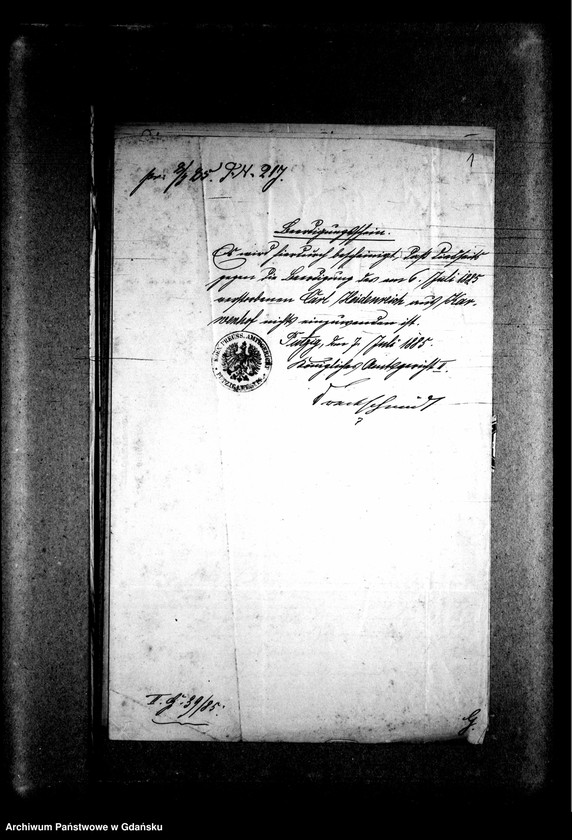 pr: 8/7 85. J. N. 217.
1
Beerdigungsschein.
Es wird hierdurch bescheinigt, daß diesseits
gegen die Beerdigung des am 6. Juli 1885
verstorbenen Carl Heidenreich aus
nichts einzuwenden ist.
Putzig, den 7. Juli 1885.
Königliches Amtsgericht II.
KÖN. PREUSS. AMTSGERICHT
PUTZIG
II. G. 39/85.
G.
Archiwum Państwowe w Gdańsku